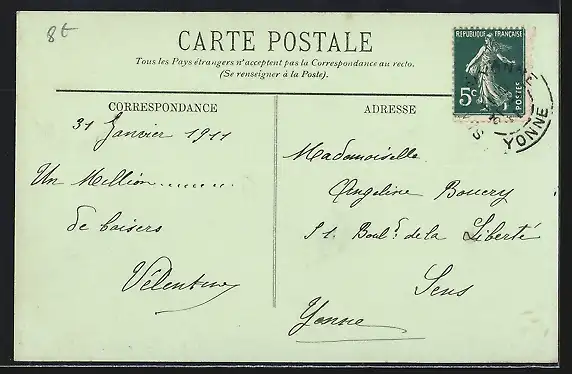 8€
CARTE POSTALE
Tous les Pays étrangers n'acceptent pas la Correspondance au recto.
(Se renseigner à la Poste).
REPUBLIQUE FRANÇAISE
5c
POSTES
YONNE
CORRESPONDANCE
31 Janvier 1911
Un Million..........
de baisers
ADRESSE
Mademoiselle
Angeline
51 Boul.d de la Liberté
Sens
Yonne